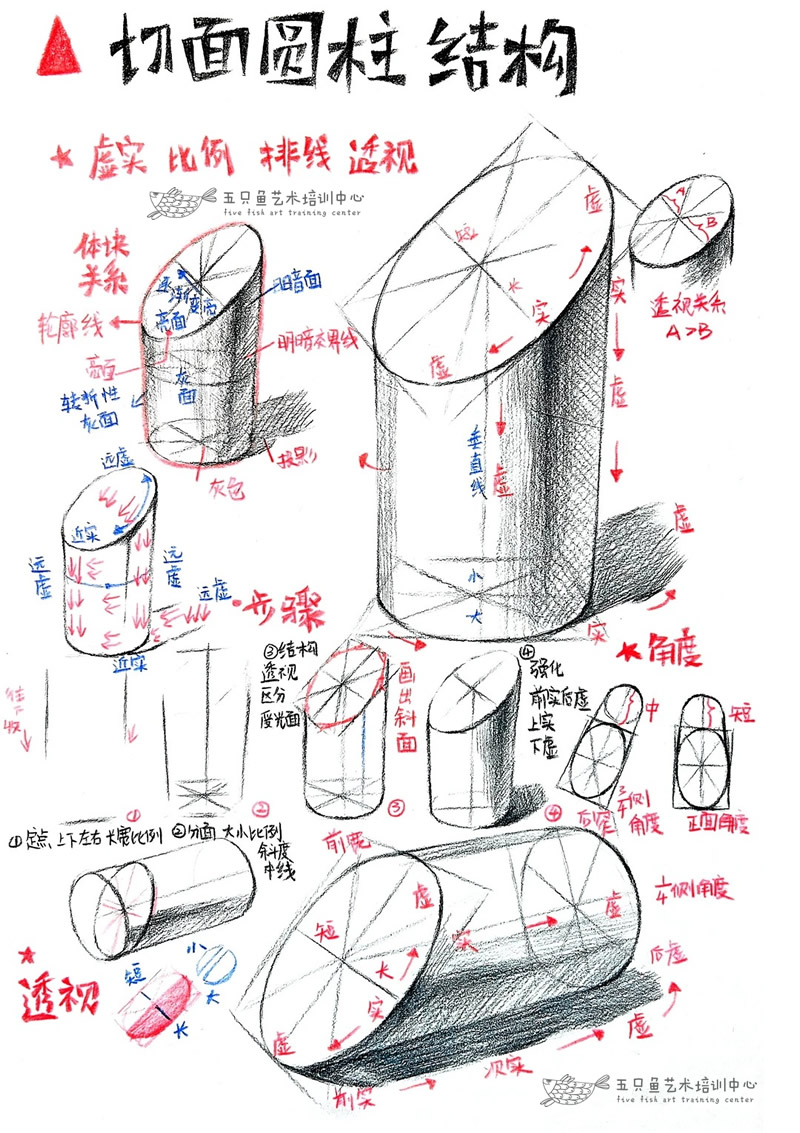 切面圆柱结构
虚实 比例 排线 透视
五只鱼艺术培训中心
five fish art training center
体块
关系
轮廓线
亮面
转折性
灰面
逐渐度亮
亮面
灰面
明暗面
明暗交界线
投影
灰色
短
长
虚
实
虚
垂直线
虚
小
大
实
虚
虚
实
A
B
透视关系
A>B
远虚
近实
远虚
远虚
远虚
近实
步骤
往下收
①
②
③结构
透视
区分
受光面
画出斜面
③
④
强化
前实后虚
上实
下虚
④
角度
中
短
3/4侧
角度
正面角度
①定点、上下左右 长宽比例
②分面 大小比例
斜度
中线
透视
短
长
小
大
虚
短
大
实
虚
实
虚
1/4侧角度
后虚
虚
次实
前实
五只鱼艺术培训中心
five fish art training center